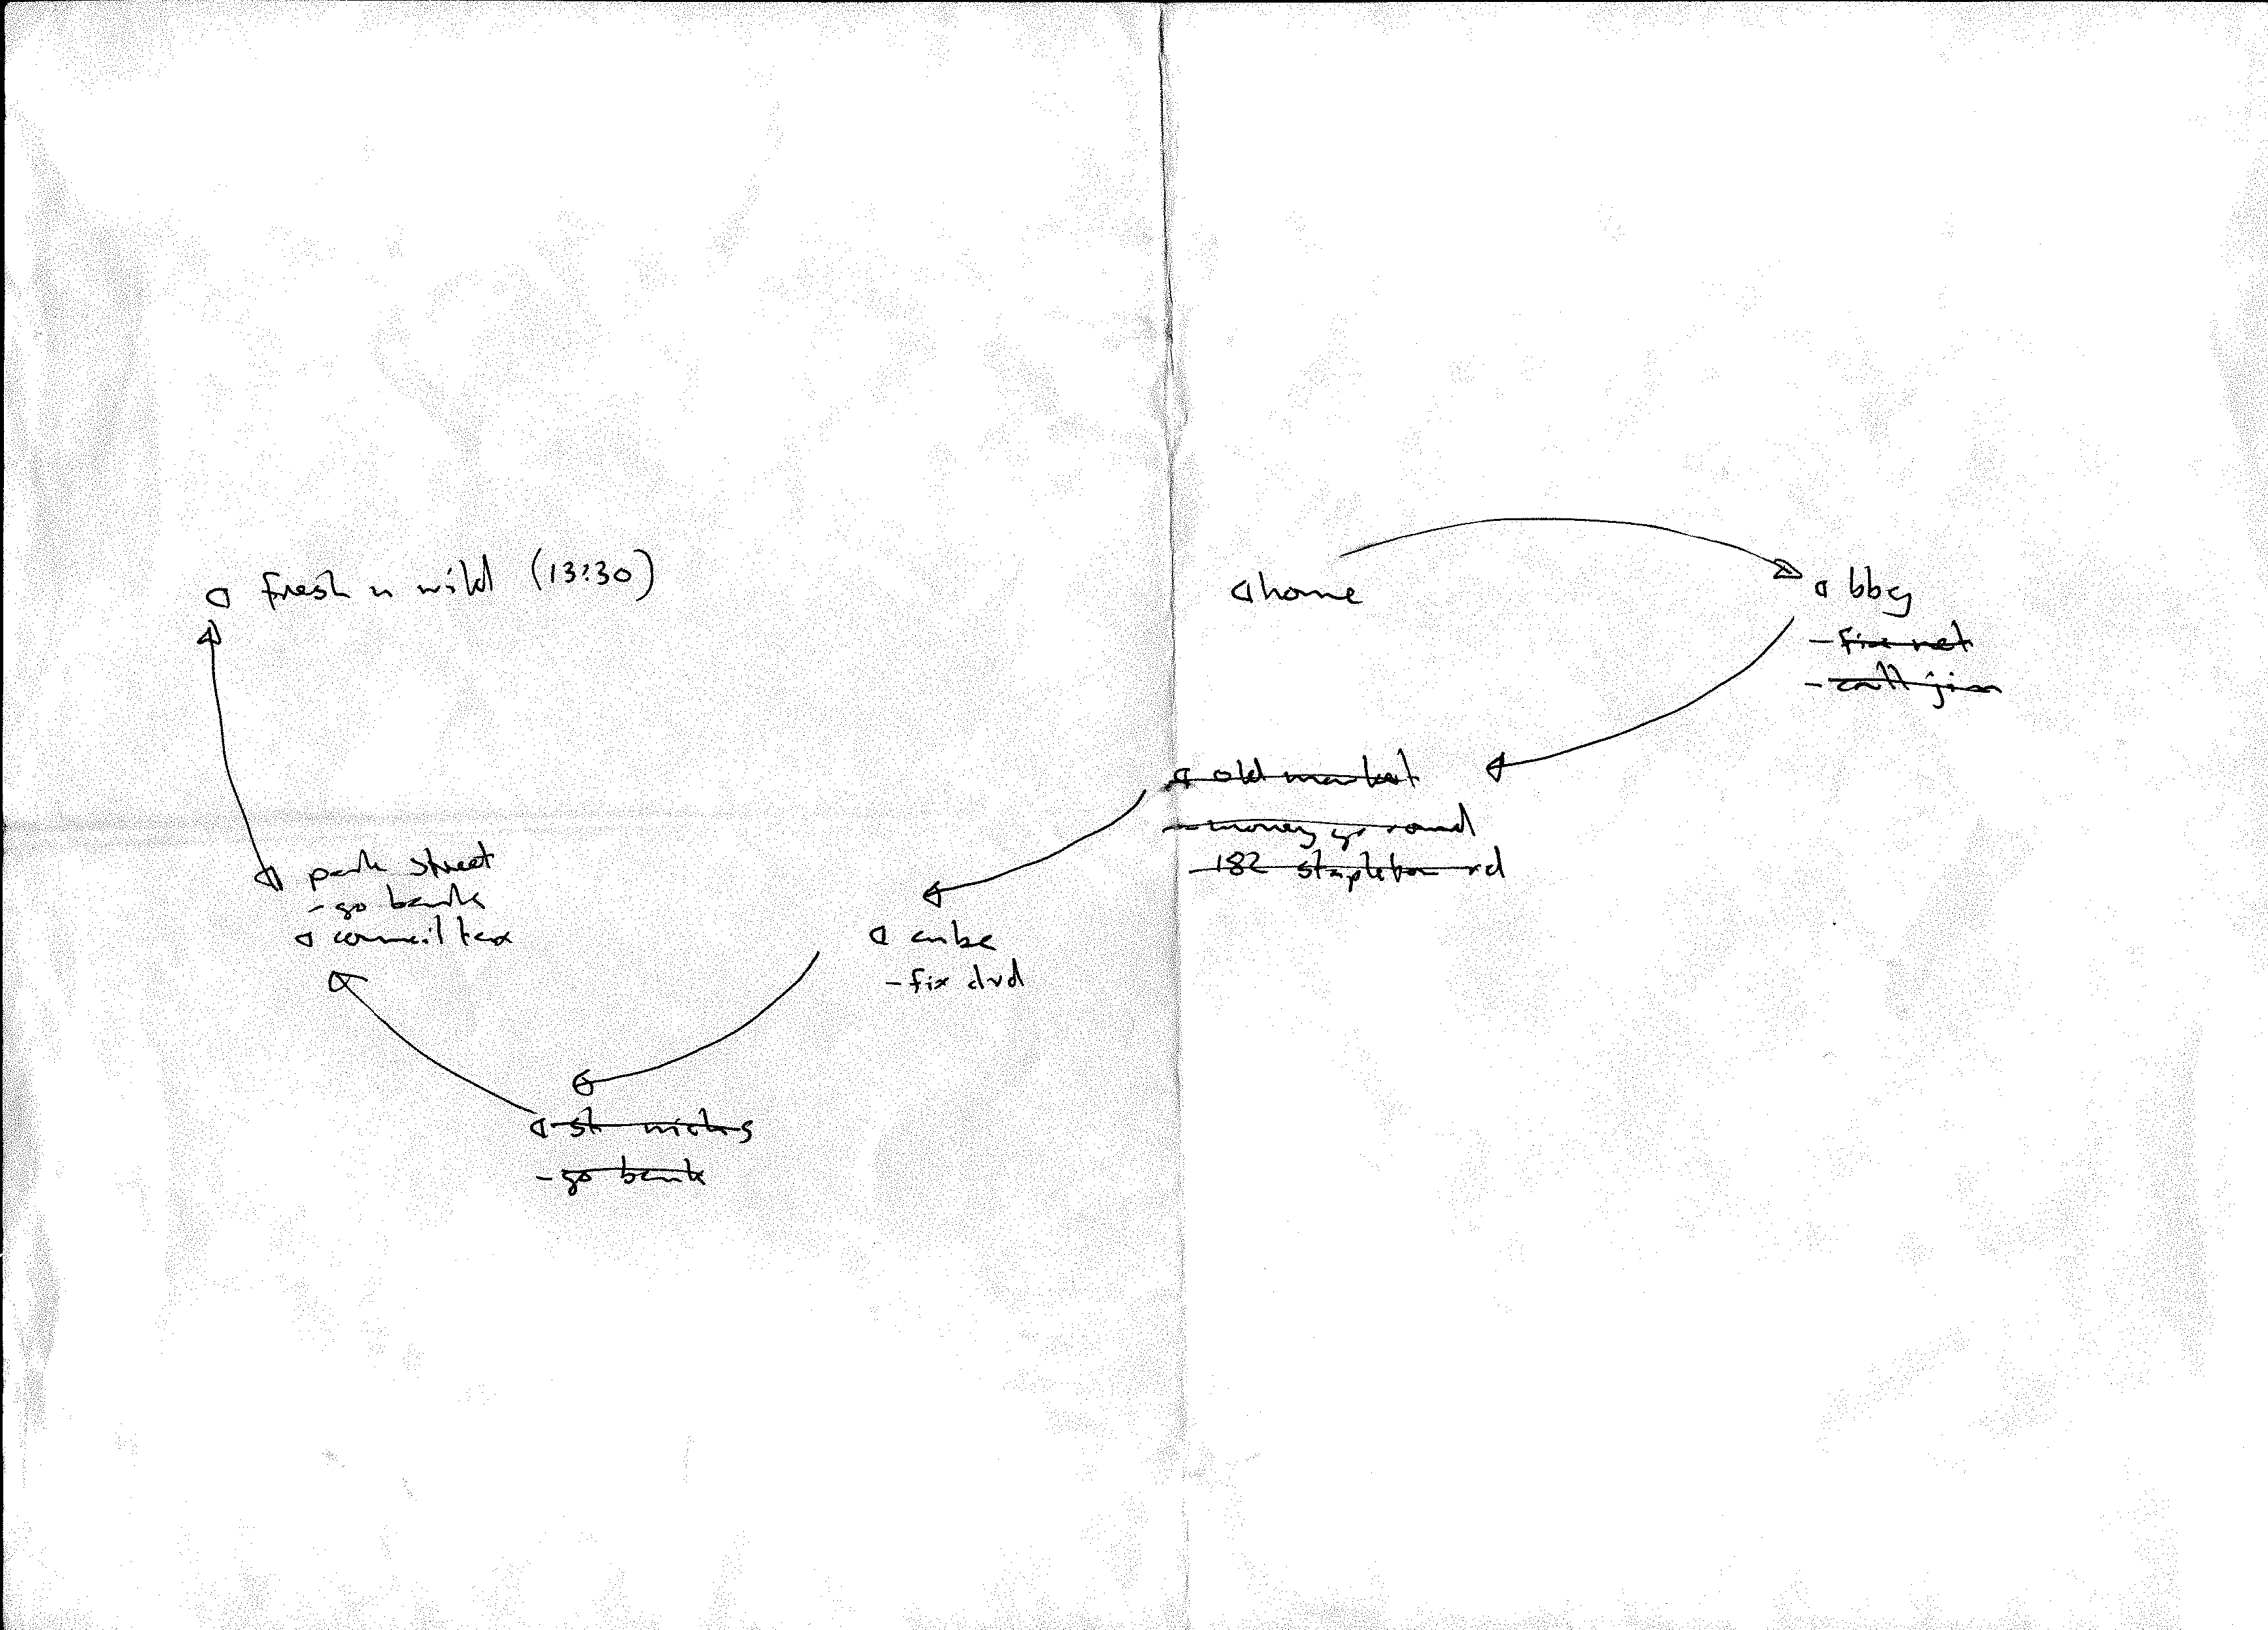 fresh n wild (13:30)
park street
- go bank
council tax
st nicks
- go bank
cube
- fix dvd
home
bbg
- fix net
- call jim
old market
- money go round
- 182 stapleton rd